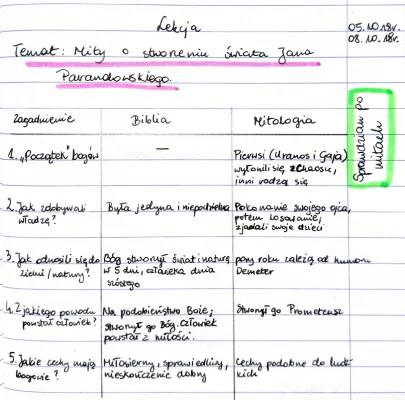 Lekcja
05.10.18r.
08.10.18r.
Temat: Mity o stworzeniu świata Jana
Parandowskiego.
Sprawdzian po
mitach
Zagadnienie Biblia Mitologia
1. „Początek" bogów — Pierwsi (Uranos i Gaja)
wyłonili się z Chaosu,
inni rodzą się
2. Jak zdobywali Była jedyna i niepodzielna Pokonanie swojego ojca,
władzę? potem losowanie,
zjadali swoje dzieci
3. Jak odnosili się do Bóg stworzył świat i naturę pory roku zależą od humoru
ziemi/natury? w 5 dni, człowieka dnia Demeter
szóstego
4. Z jakiego powodu Na podobieństwo Boże; Stworzył go Prometeusz
powstał człowiek? stworzył go Bóg. Człowiek
powstał z miłości.
5. Jakie cechy mają Miłosierny, sprawiedliwy, Cechy podobne do ludz-
bogowie? nieskończenie dobry kich